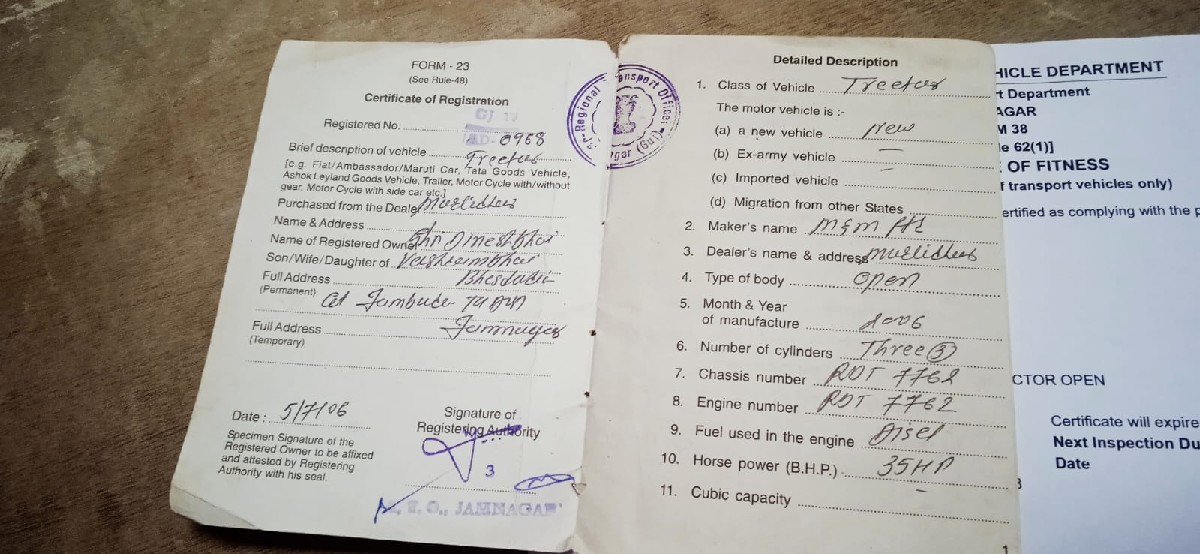 FORM - 23
(See Rule-48)
Certificate of Registration
GJ 10
Registered No. AD- 0968
Brief description of vehicle Trector
[e.g. Fiat/Ambassador/Maruti Car, Tata Goods Vehicle,
Ashok Leyland Goods Vehicle, Trailer, Motor Cycle with/without
gear. Motor Cycle with side car etc.]
Purchased from the Dealer
Name & Address
Name of Registered Owner Shri
Son/Wife/Daughter of
Full Address
(Permanent) At
Full Address Jamnagar
(Temporary)
Date : 5/7/06
Signature of
Registering Authority
Specimen Signature of the
Registered Owner to be affixed
and attested by Registering
Authority with his seal.
3
T. O., JAMNAGAR
Regional Transport Officer
Detailed Description
1. Class of Vehicle Trector
The motor vehicle is :-
(a) a new vehicle new
(b) Ex-army vehicle
(c) Imported vehicle
(d) Migration from other States
2. Maker's name M&M
3. Dealer's name & address
4. Type of body open
5. Month & Year
of manufacture 2006
6. Number of cylinders Three (3)
7. Chassis number RDT 7762
8. Engine number RDT 7762
9. Fuel used in the engine Disel
10. Horse power (B.H.P.) 35HP
11. Cubic capacity -
1
HICLE DEPARTMENT
rt Department
AGAR
M 38
le 62(1)]
OF FITNESS
f transport vehicles only)
ertified as complying with the p
CTOR OPEN
Certificate will expire
Next Inspection Du
Date